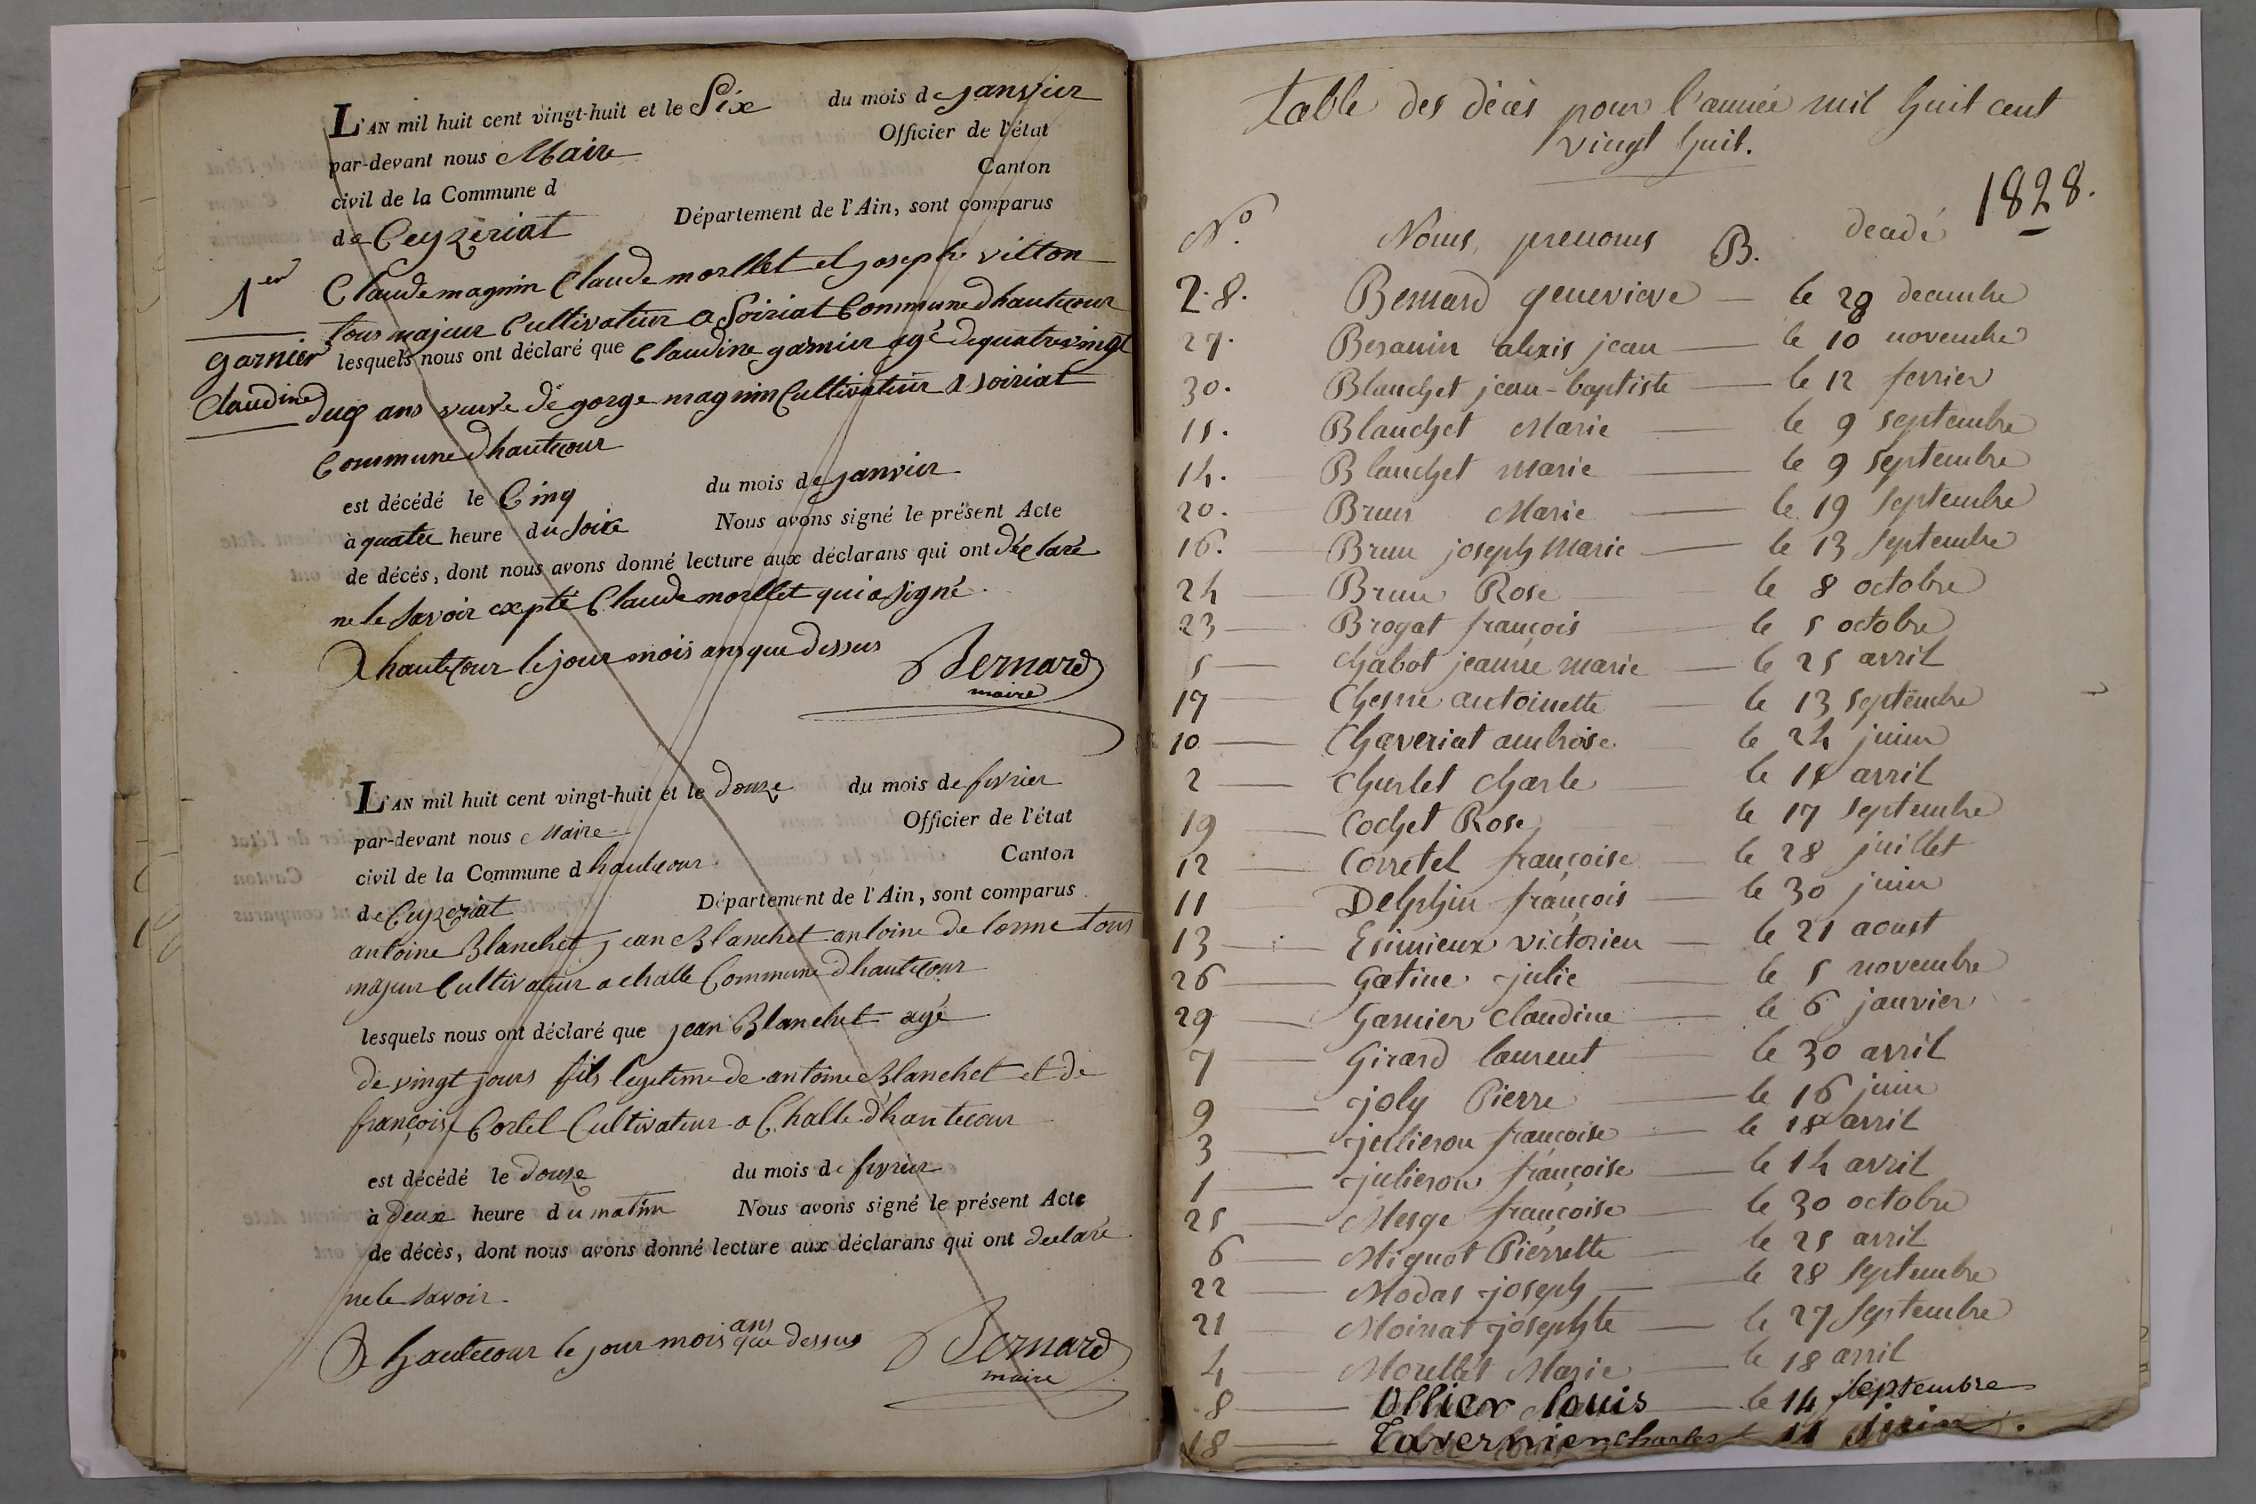 L'AN mil huit cent vingt-huit et le Six du mois de janvier
par-devant nous Maire Officier de l'état
civil de la Commune d Canton
de Ceyzeriat Département de l'Ain, sont comparus
1er Claude magnin Claude morllet et joseph vitton
tous majeur Cultivateur a Soiriat Commune d'hautecour
garnier lesquels nous ont déclaré que Claudine garnier agé de quatrevingt
Claudine deux ans veuve de gorge magnin Cultivateur a Soiriat
Commune d'hautecour
est décédé le Cinq du mois de janvier
à quatre heure du Soire Nous avons signé le présent Acte
de décés, dont nous avons donné lecture aux déclarans qui ont déclaré
ne le savoir expté Claude morllet qui a signé
A hautecour le jour mois ans que dessus Bernard
maire
L'AN mil huit cent vingt-huit et le douze du mois de fevrier
par-devant nous Maire Officier de l'état
civil de la Commune d hautecour Canton
de Ceyzeriat Département de l'Ain, sont comparus
antoine Blanchet jean Blanchet antoine de lorme tous
majeur Cultivateur a challe Commune d'hautecour
lesquels nous ont déclaré que jean Blanchet agé
de vingt jours fils legetime de antoine Blanchet et de
françoise Cortel Cultivateur a Challe d'hautecour
est décédé le douze du mois de fevrier
à deux heure du matin Nous avons signé le présent Acte
de décès, dont nous avons donné lecture aux déclarans qui ont declaré
ne le savoir
A hautecour le jour mois ans que dessus Bernard
maire
table des décès pour l'année mil huit cent
vingt huit.
1828.
No. Noms, prenoms decedé
B.
28. Bernard genevieve le 29 decembre
27. Besanin alexis jean le 10 novembre
30. Blanchet jean-baptiste le 12 fevrier
15. Blanchet Marie le 9 septembre
14. Blanchet Marie le 9 septembre
20. Brun Marie le 19 septembre
16. Brun joseph Marie le 13 septembre
24 Brun Rose le 8 octobre
23 Brogat françois le 5 octobre
5 Chabot jeanne marie le 25 avril
17 Chesne antoinette le 13 septembre
10 Chaveriat ambroise le 24 juin
2 Churlet Charle le 18 avril
19 Cochet Rose le 17 septembre
12 Corretel françoise le 28 juillet
11 Delphin françois le 30 juin
13 victorien le 21 aoust
26 Gatine julie le 5 novembre
29 Garnier Claudine le 6 janvier
7 Girard laurent le 30 avril
9 joly Pierre le 16 juin
3 julieron françoise le 18 avril
1 julieron françoise le 14 avril
25 Mesge françoise le 30 octobre
6 Mignot Pierrette le 25 avril
22 Modas joseph le 28 septembre
21 Moirat josephte le 27 septembre
4 Morellet Marie le 18 avril
8 Ollier louis le 14 septembre
18 Tavernier Charles 11 juin